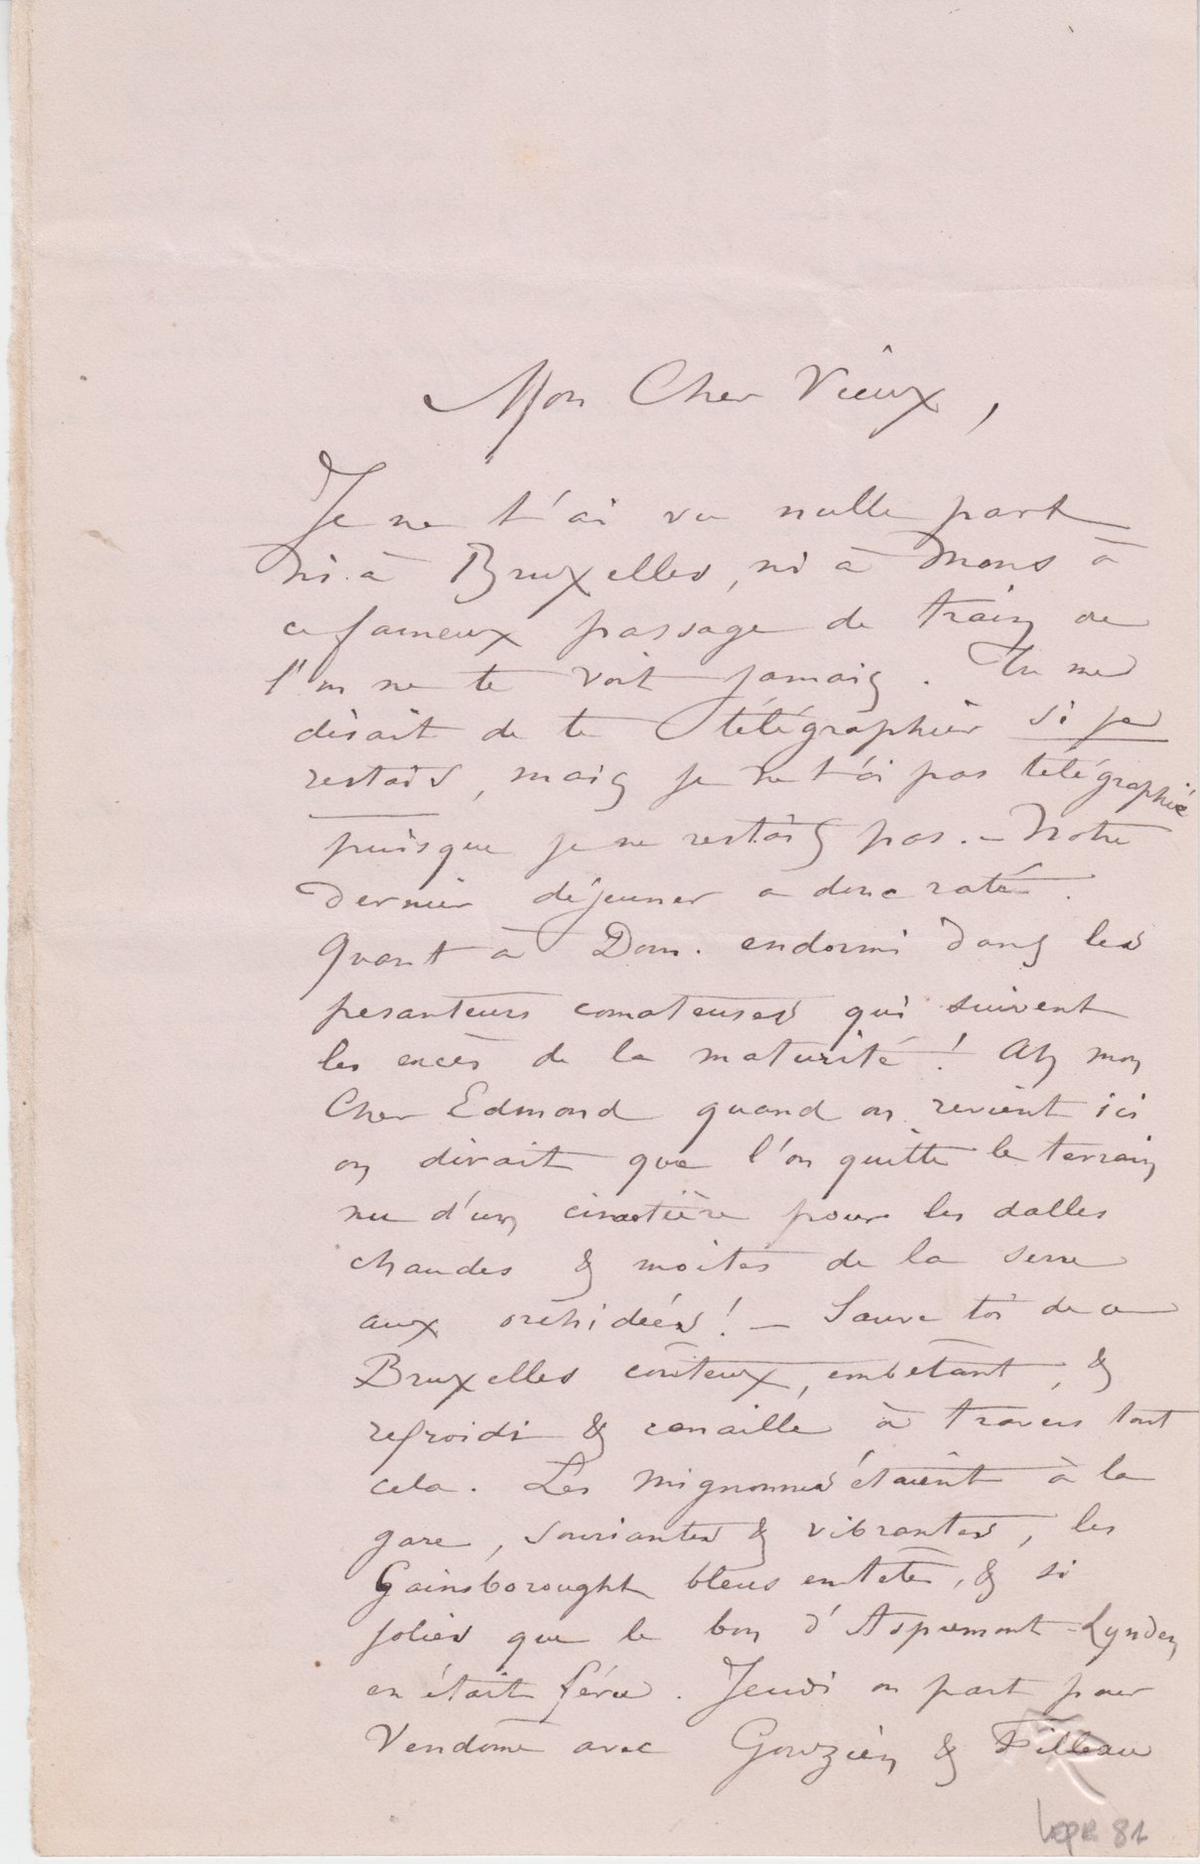 Mon Cher Vieux,
Je ne t'ai vu nulle part
ni à Bruxelles, ni à Mons à
ce fameux passage de train où
l'on ne te voit jamais. Tu me
disait de te télégraphier si je
restais, mais je ne t'ai pas télégraphié
puisque je ne restais pas. – Notre
dernier déjeuner a donc raté.
Quant à Dom. endormi dans les
pesanteurs comateuses qui suivent
les excès de la maturité! Ah mon
Cher Edmond quand on revient ici
on dirait que l'on quitte le terrain
nu d'un cimetière pour les dalles
chaudes & moites de la serre
aux orchidées! – Sauve toi de ce
Bruxelles coûteux, embêtant, &
refroidi & canaille à travers tout
cela. Les mignonnes étaient à la
gare, souriantes & vibrantes, les
Gainsborought bleus en tête, & si
jolies que le bon d'Aspremont-Lynden
en était féru. Jeudi on part pour
Vendôme avec Gouzien & Filleau